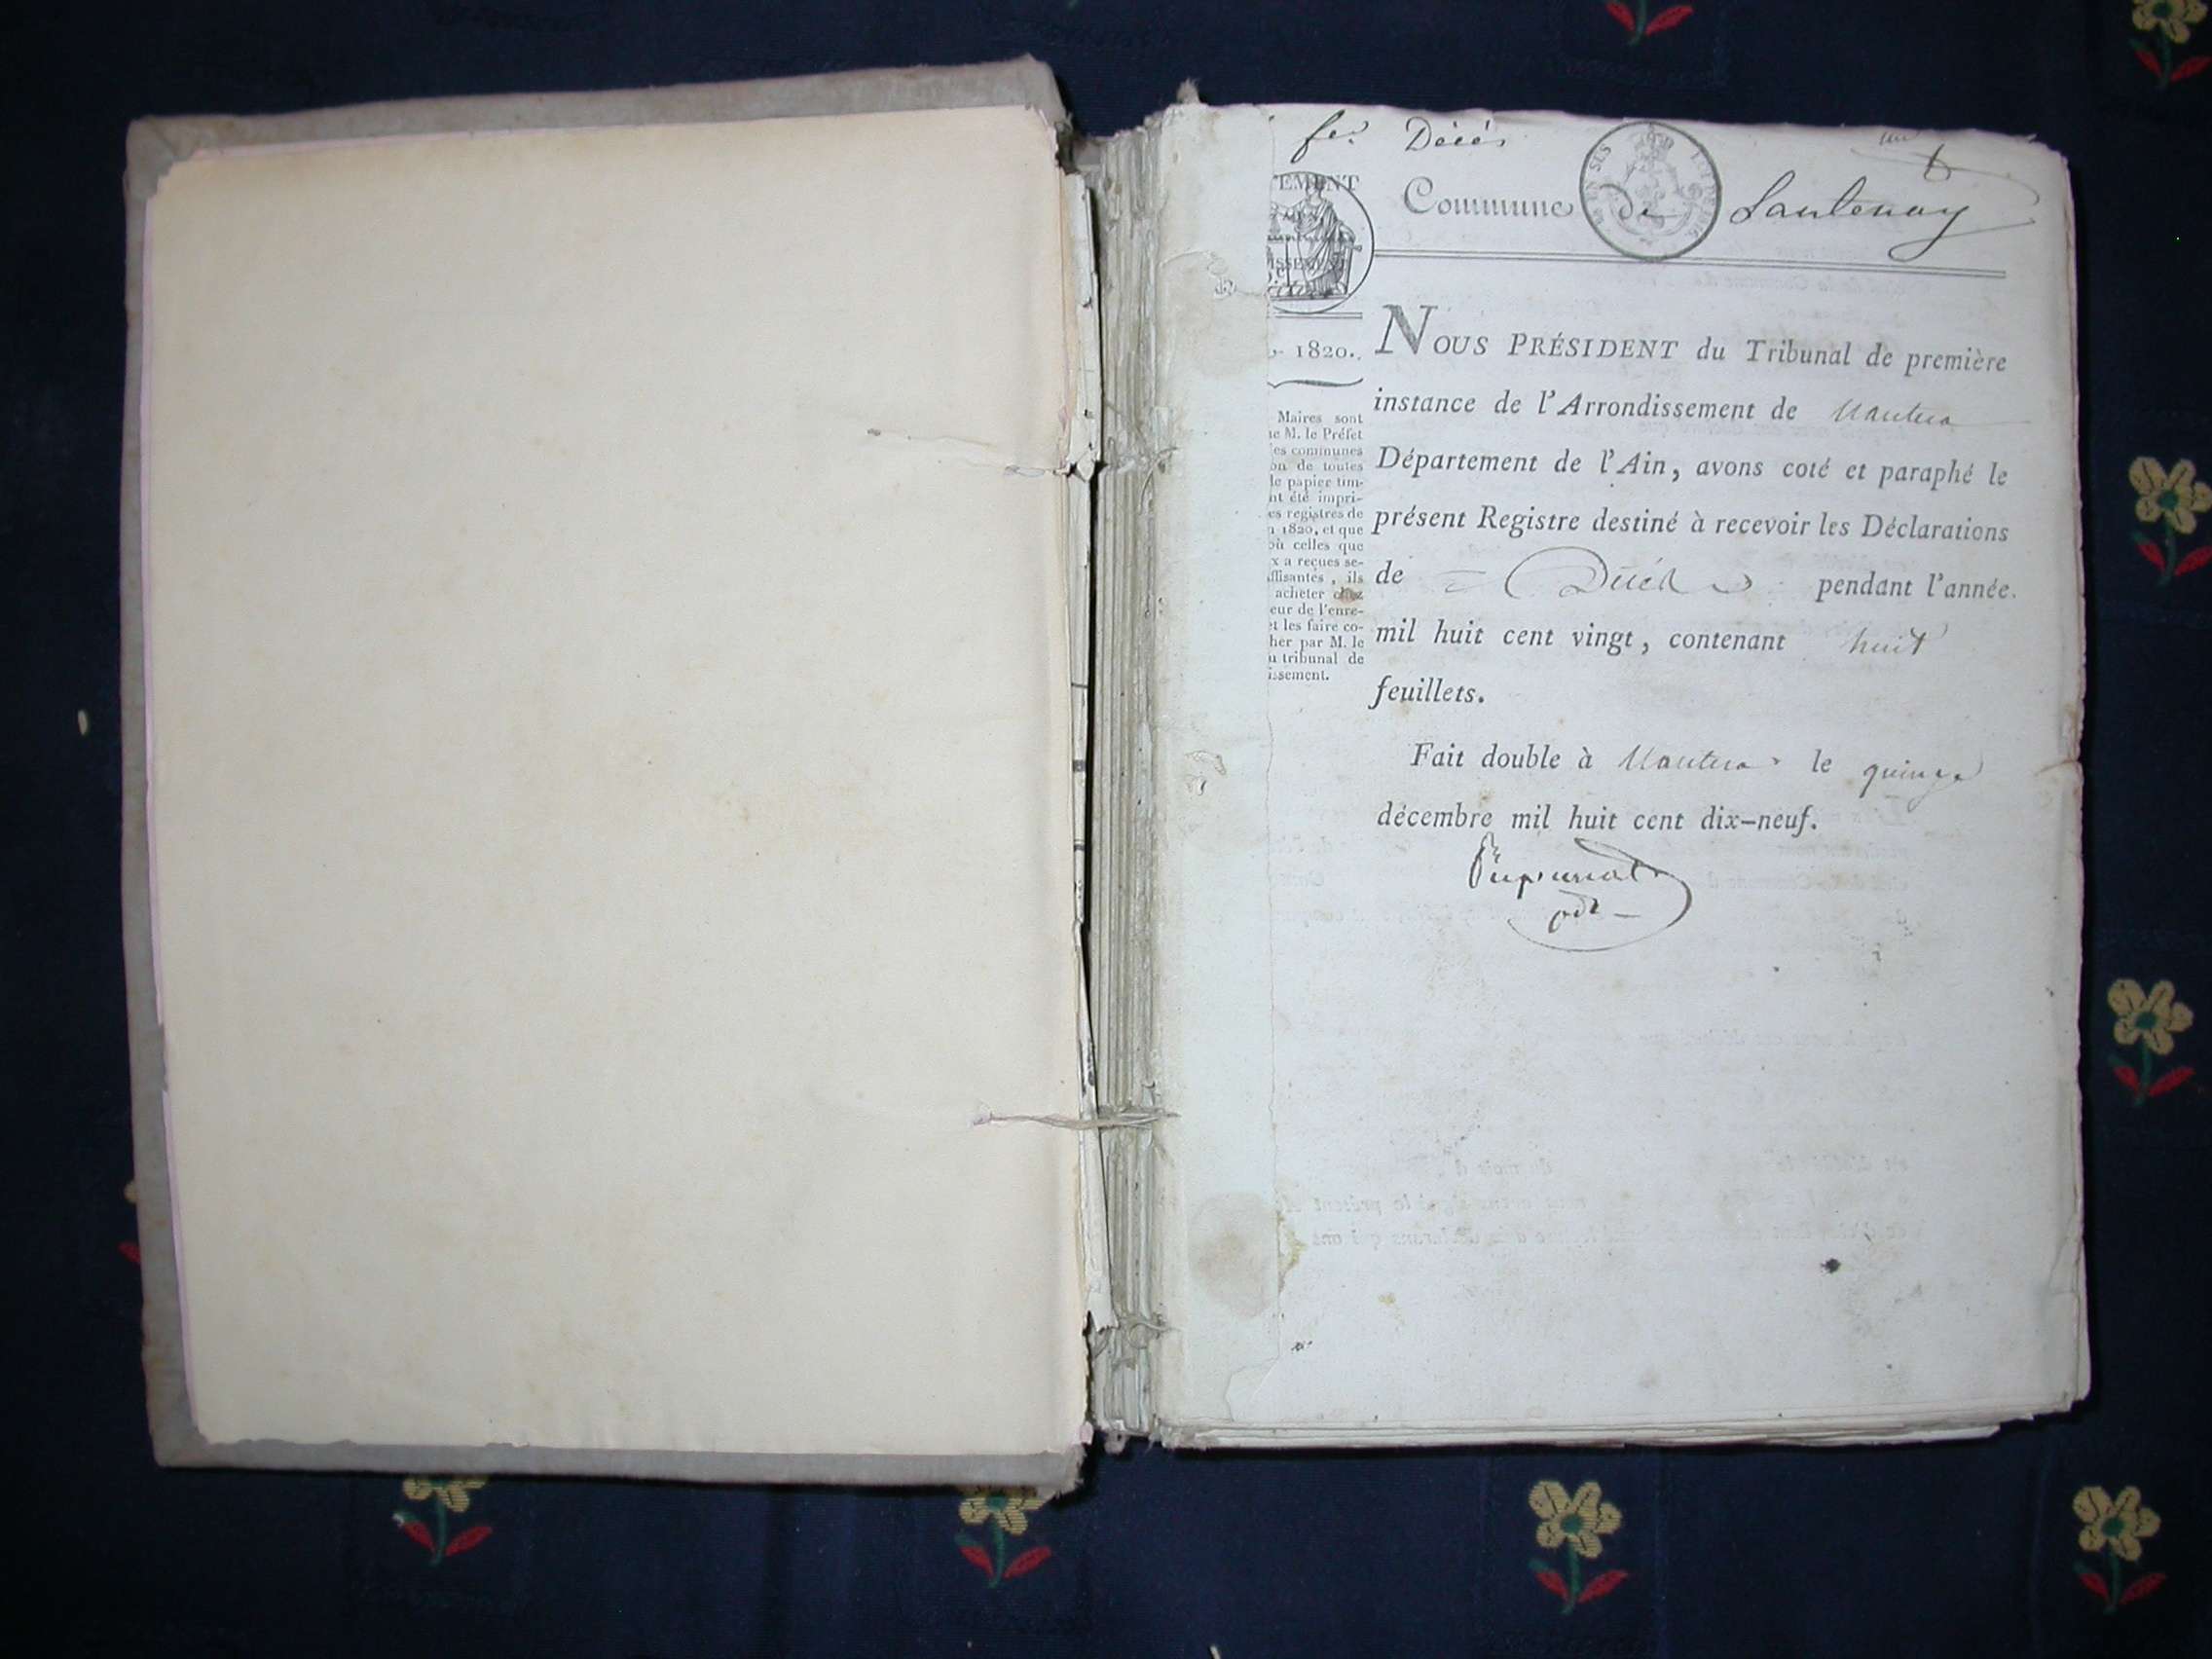 fer Décès
un
EMENT
Commune de Lantenay
ISSEMENT
1820.
Maires sont
ue M. le Préfet
es communes
on de toutes
le papier tim-
nt été impri-
es registres de
n 1820, et que
où celles que
x a reçues se-
ffisantes, ils
acheter chez
eur de l'enre-
et les faire co-
her par M. le
u tribunal de
issement.
NOUS PRÉSIDENT du Tribunal de première
instance de l'Arrondissement de Nantua
Département de l'Ain, avons coté et paraphé le
présent Registre destiné à recevoir les Déclarations
de Décès pendant l'année
mil huit cent vingt, contenant huit
feuillets.
Fait double à Nantua le quinze
décembre mil huit cent dix-neuf.